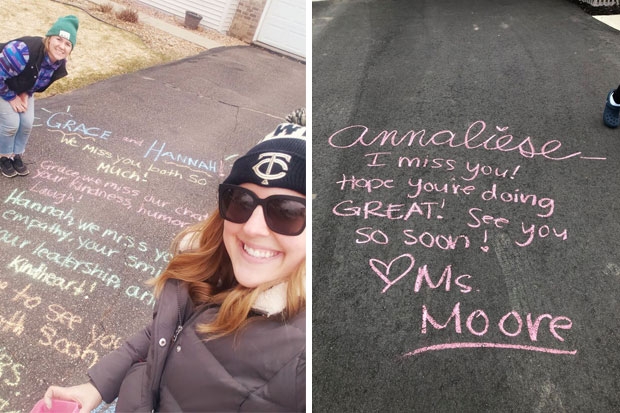 GRACE and
HANNAH!
We miss you both so
much!
Grace, we miss our chats
your kindness, humor
laugh!
Hannah, we miss yo
empathy, your smi
our leadership, an
Kindheart!
to see you
soon!
Annaliese—
I miss you!
Hope you're doing
GREAT! See you
so soon!
♡ Ms.
Moore